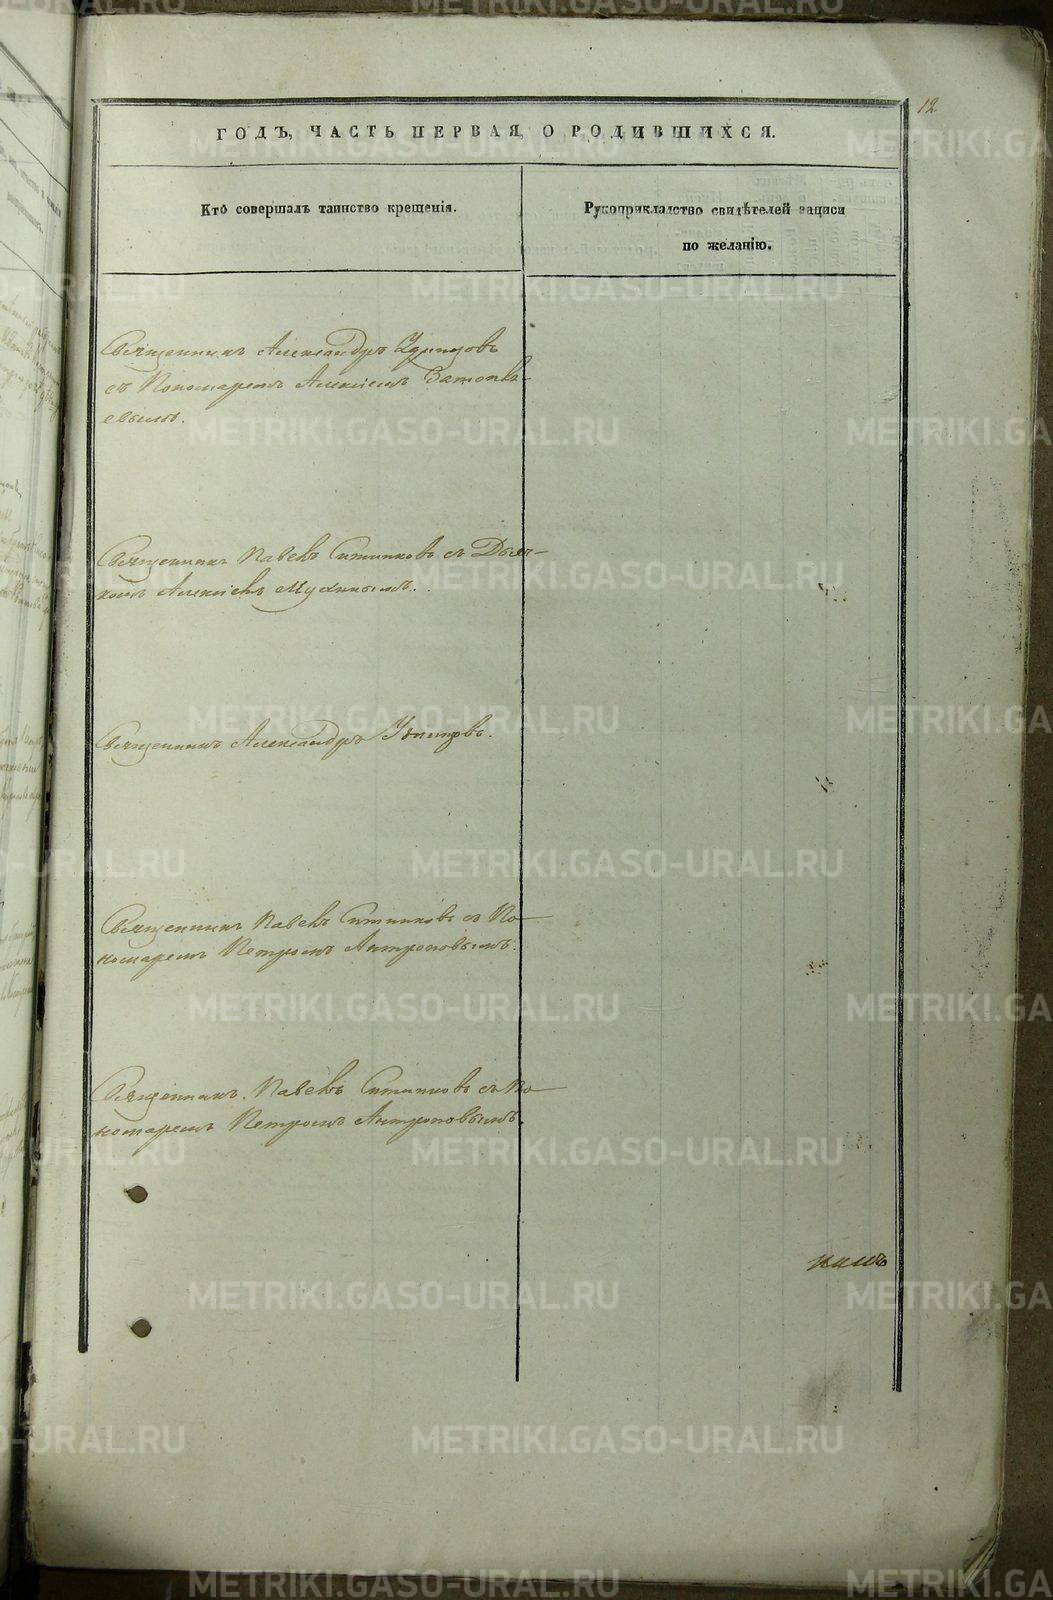 12
ГОДЪ, ЧАСТЬ ПЕРВАЯ, О РОДИВШИХСЯ.
Кто совершалъ таинство крещенія.
Рукоприкладство свидѣтелей записи
по желанію.
Священникъ Александръ Удинцовъ
съ Пономаремъ Алексіемъ Затопля-
евымъ.
Священникъ Павелъ Ситниковъ съ Дьяч-
комъ Алексіемъ Мухинымъ.
Священникъ Александръ Удинцовъ.
Священникъ Павелъ Ситниковъ съ По-
номаремъ Петромъ Антроповымъ.
Священникъ Павелъ Ситниковъ съ По-
номаремъ Петромъ Антроповымъ.
METRIKI.GASO-URAL.RU